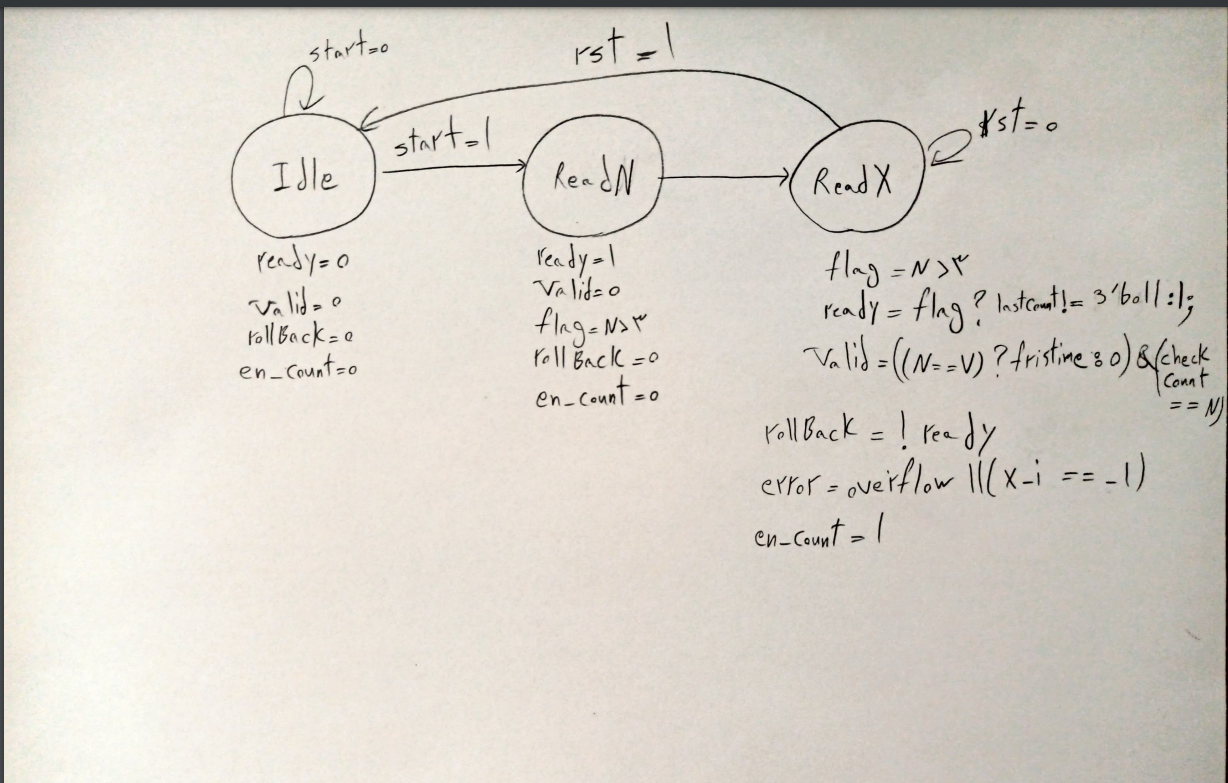 start=0
rst=1
start=1
rst=0
Idle
ReadN
ReadX
ready=0
Valid=0
rollBack=0
en_count=0
ready=1
Valid=0
flag=N>۳
rollBack=0
en_count=0
flag=N>۳
ready=flag? lastcount!= 3'b011:1;
Valid=((N==V)?fristine:0)&(check
count
==N)
rollBack = ! ready
error=overflow ||(x_i == -1)
en_count=1